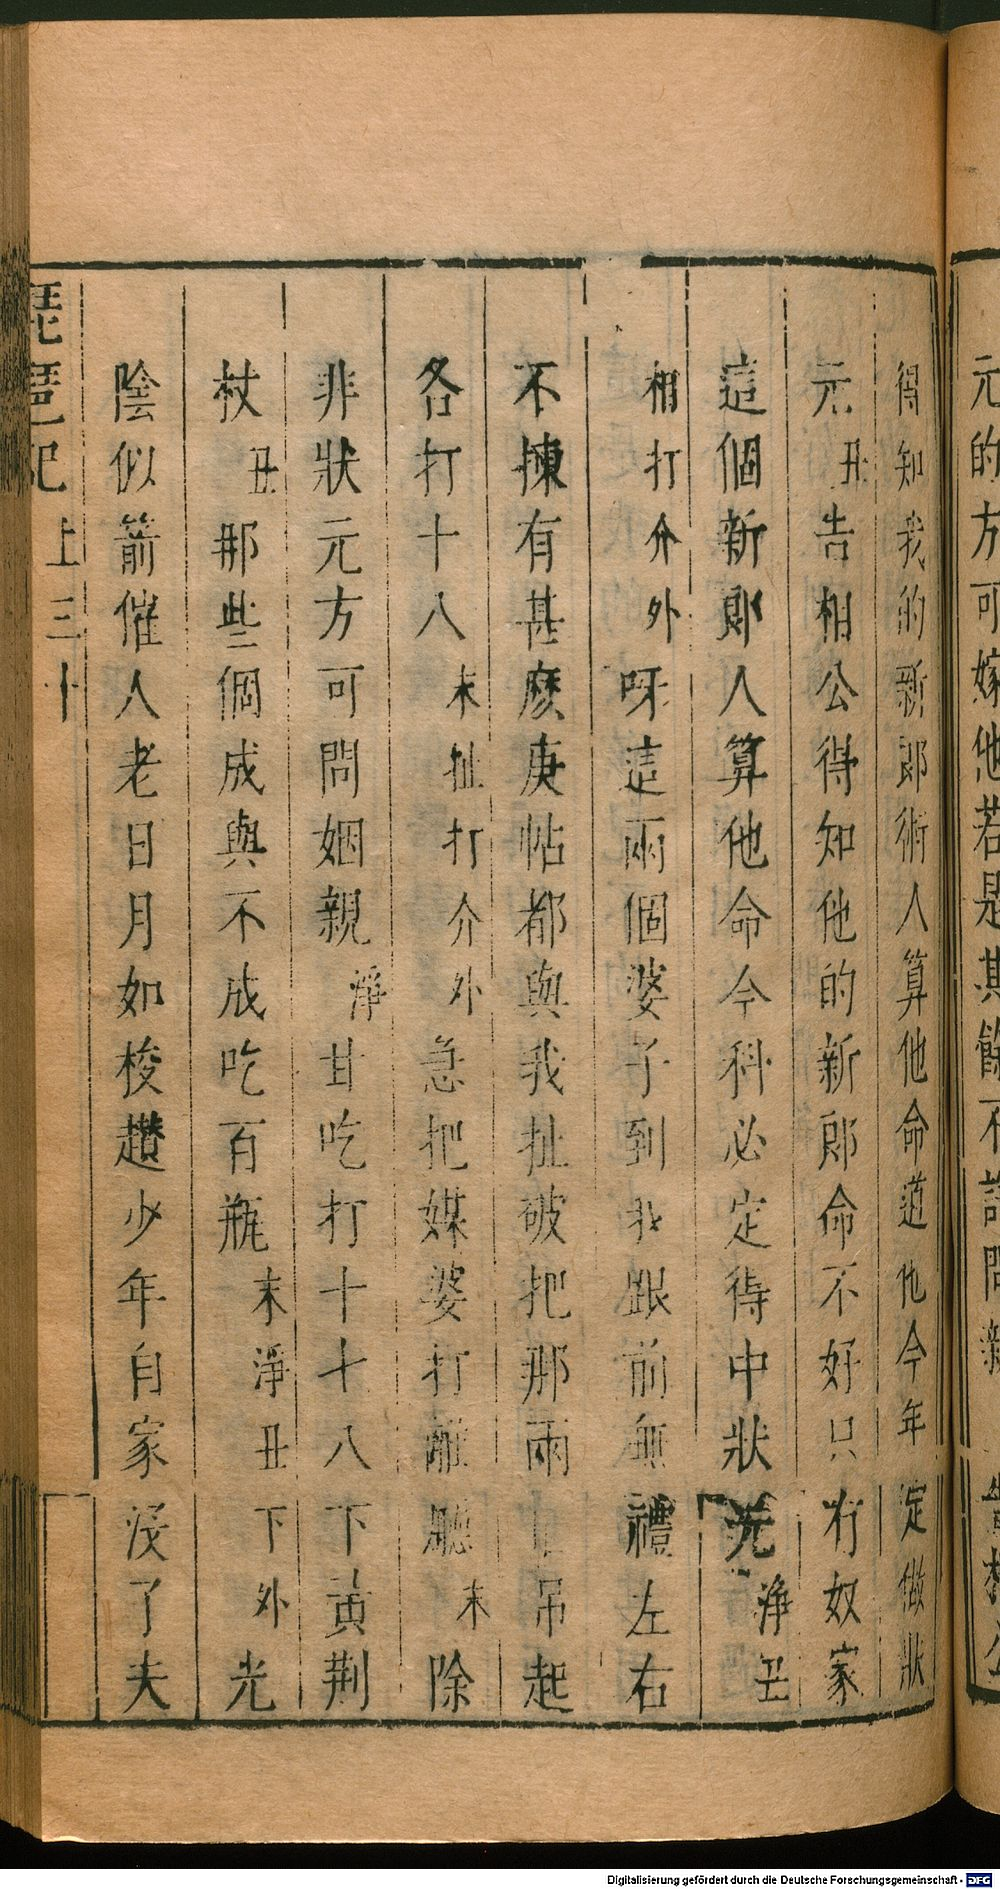 元的方可嫁他若是其餘不許問
得知我的新郎術人算他命道他今年定做狀
元丑告相公得知他的新郎命不好只有奴家
這個新郎人算他命今科必定得中狀元淨丑
相打介外呀這兩個婆子到我跟前無禮左右
不揀有甚麽庚帖都與我扯破把那兩個吊起
各打十八末扯打介外急把媒婆打離廳末除
非狀元方可問姻親淨甘吃打十十八下黃荆
杖丑那些個成與不成吃百瓶末淨丑下外光
陰似箭催人老日月如梭趲少年自家沒了夫
琵琶記 上 三十
Digitalisierung gefördert durch die Deutsche Forschungsgemeinschaft - DFG